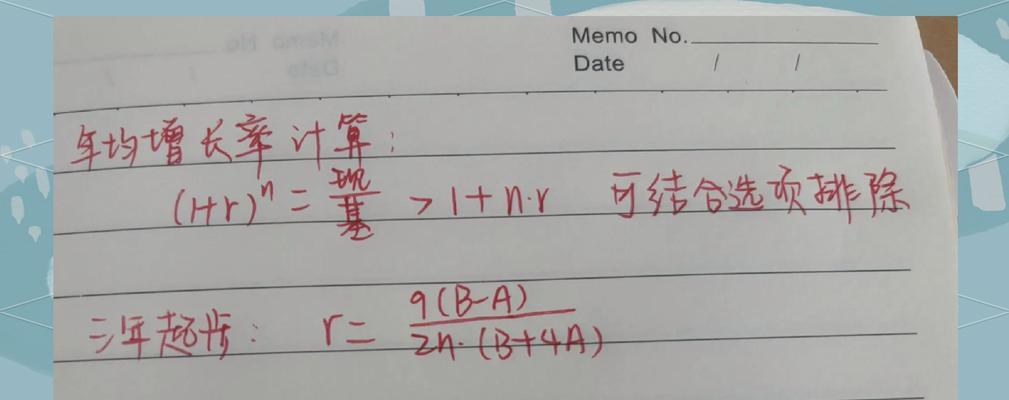 Memo No.
Date / /
年均增长率计算:
(1+r)ⁿ = 现/基 > 1+n·r 可结合选项排除
三年起步: r = 9(B-A)/2n·(B+4A)